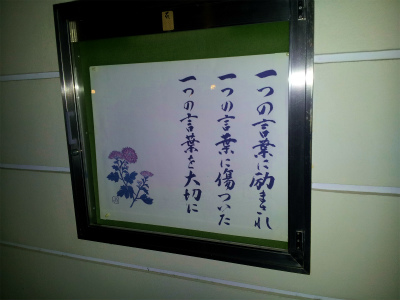 一つの言葉に励まされ
一つの言葉に傷ついた
一つの言葉を大切に